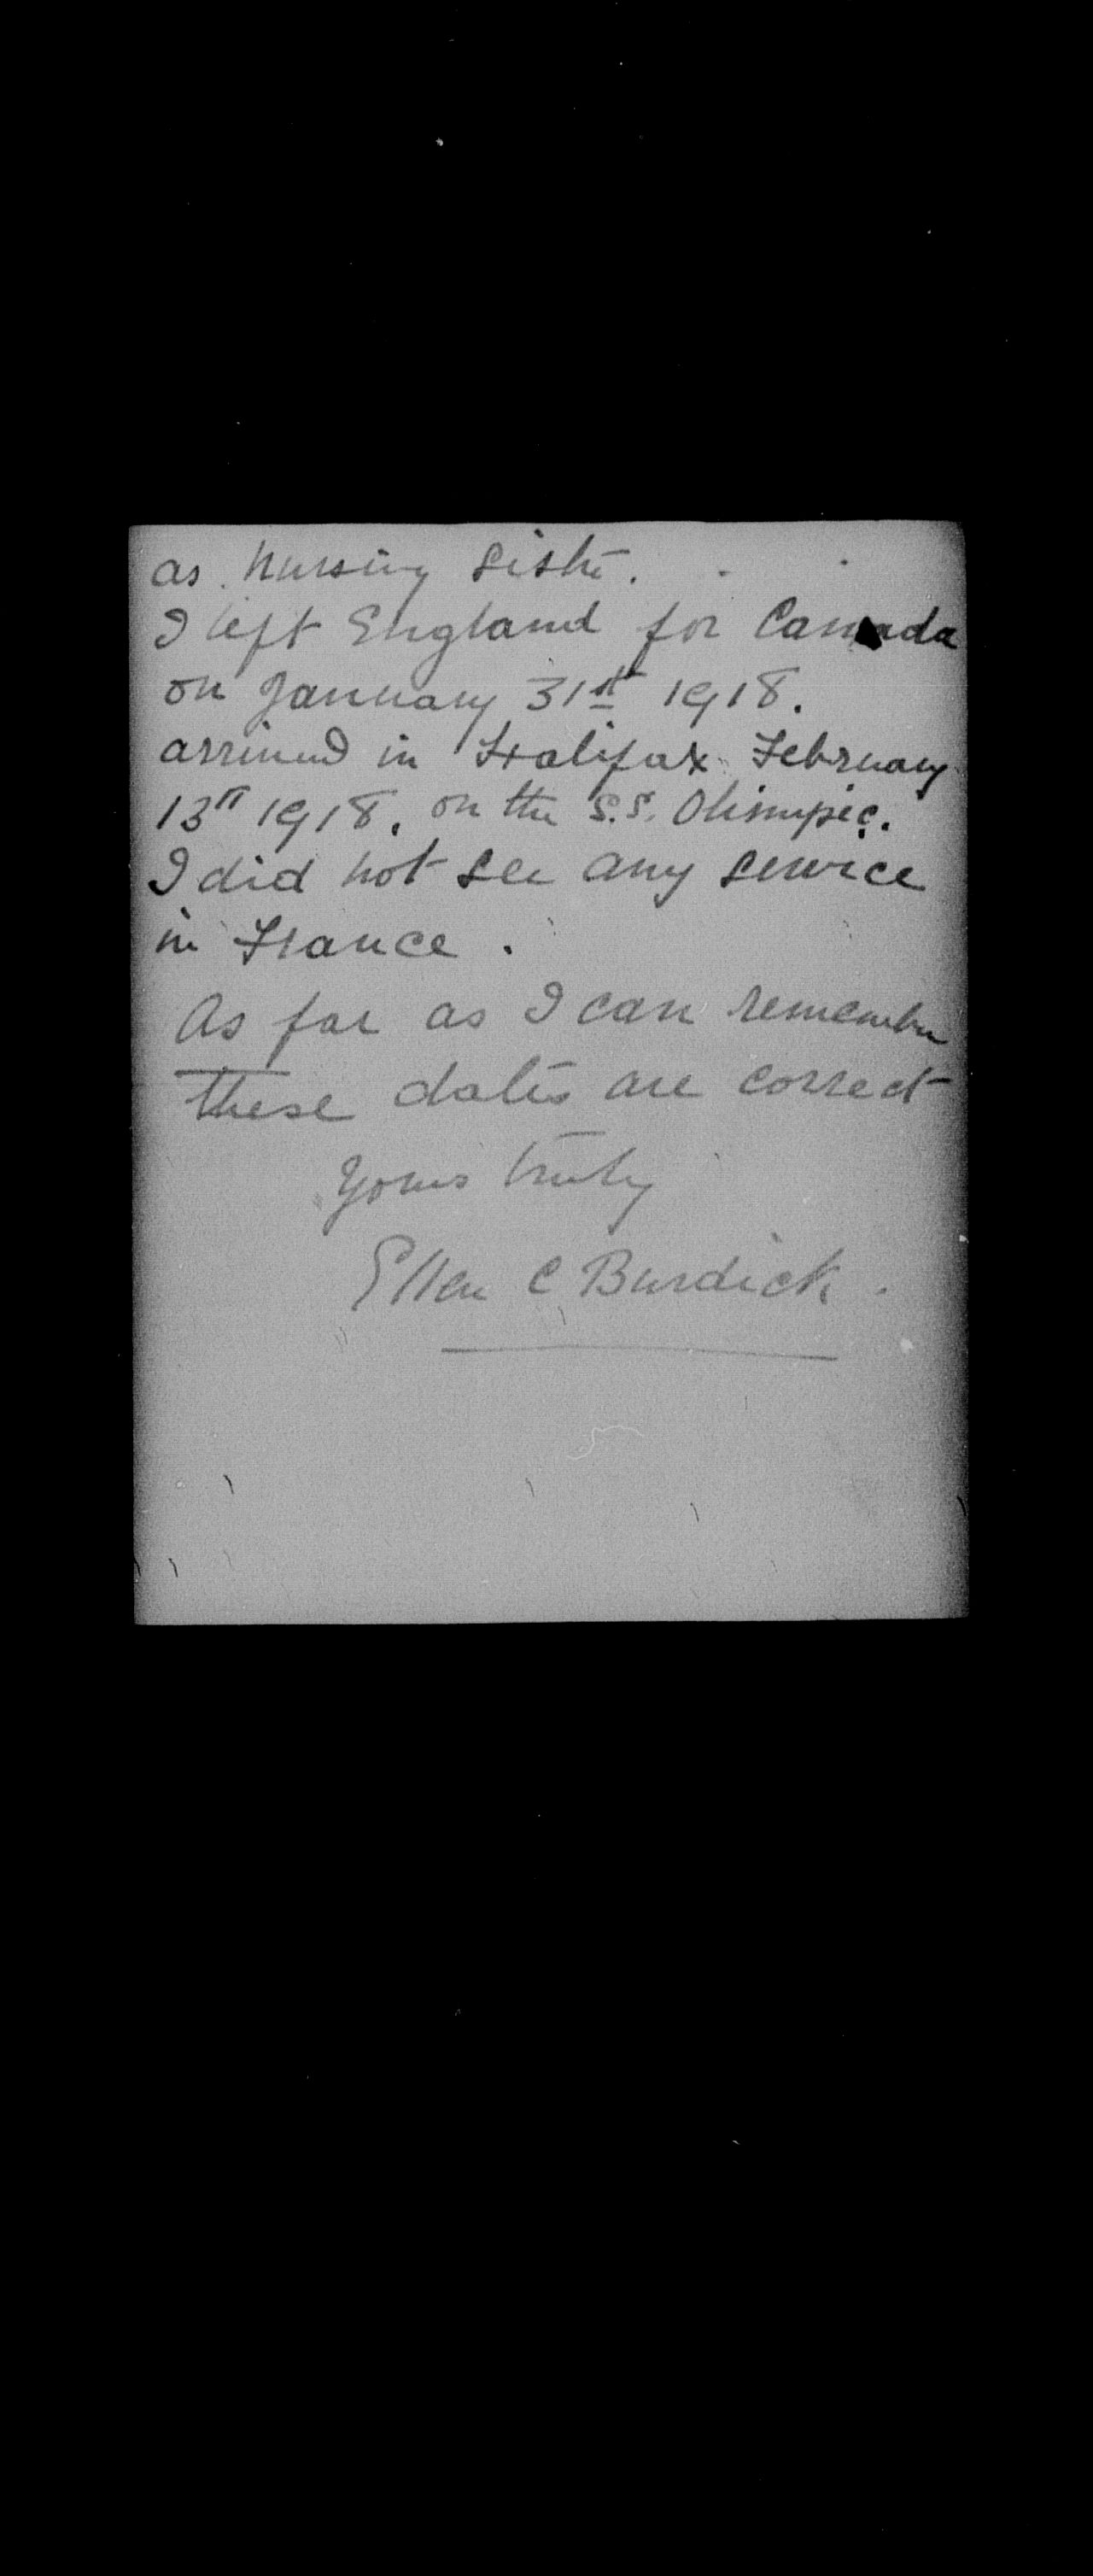 as Nursing Sister.
I left England for Canada
on January 31st 1918.
arrived in Halifax February
13th 1918. on the S.S. Olimpic.
I did not see any service
in France.
As far as I can remember
these dates are correct
Yours truly
Ellen C Burdick.